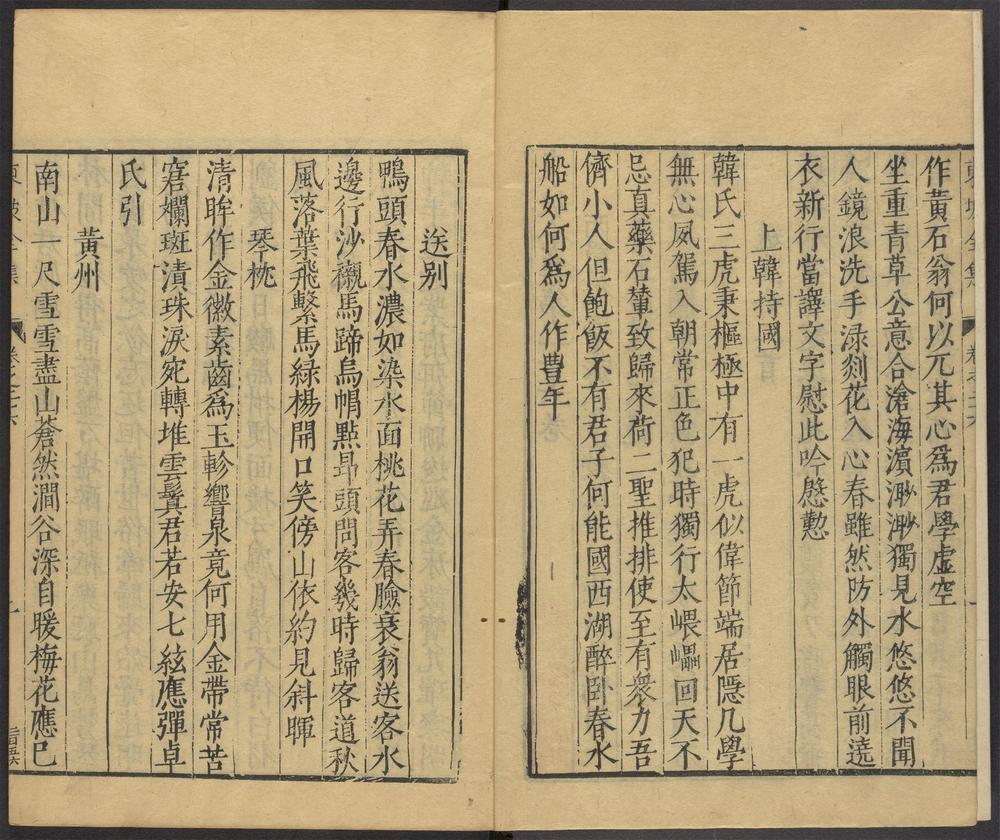 作黃石翁何以兀其心爲君學虚空
坐重青草公意合滄海濵渺渺獨見水悠悠不聞
人鏡浪洗手渌剡花入心春雖然防外觸眼前遶
衣新行當譯文字慰此吟慇懃
上韓持國
韓氏三虎秉樞極中有一虎似偉節端居隠几學
無心夙駕入朝常正色犯時獨行太嵔㠢回天不
忌真藥石輦致歸來荷二聖推排使至有衆力吾
儕小人但飽飯不有君子何能國西湖醉卧春水
船如何爲人作豊年
送别
鴨頭春水濃如染水面桃花弄春臉衰翁送客水
邊行沙襯馬蹄烏帽㸃昻頭問客幾時歸客道秋
風落葉飛繫馬緑楊開口笑傍山依約見斜暉
琴枕
清眸作金徽素齒爲玉軫響泉竟何用金帶常苦
窘斕斑漬珠淚宛轉堆雲鬒君若安七絃應彈卓
氏引
黄州
南山一尺雪雪盡山蒼然澗谷深自暖梅花應已